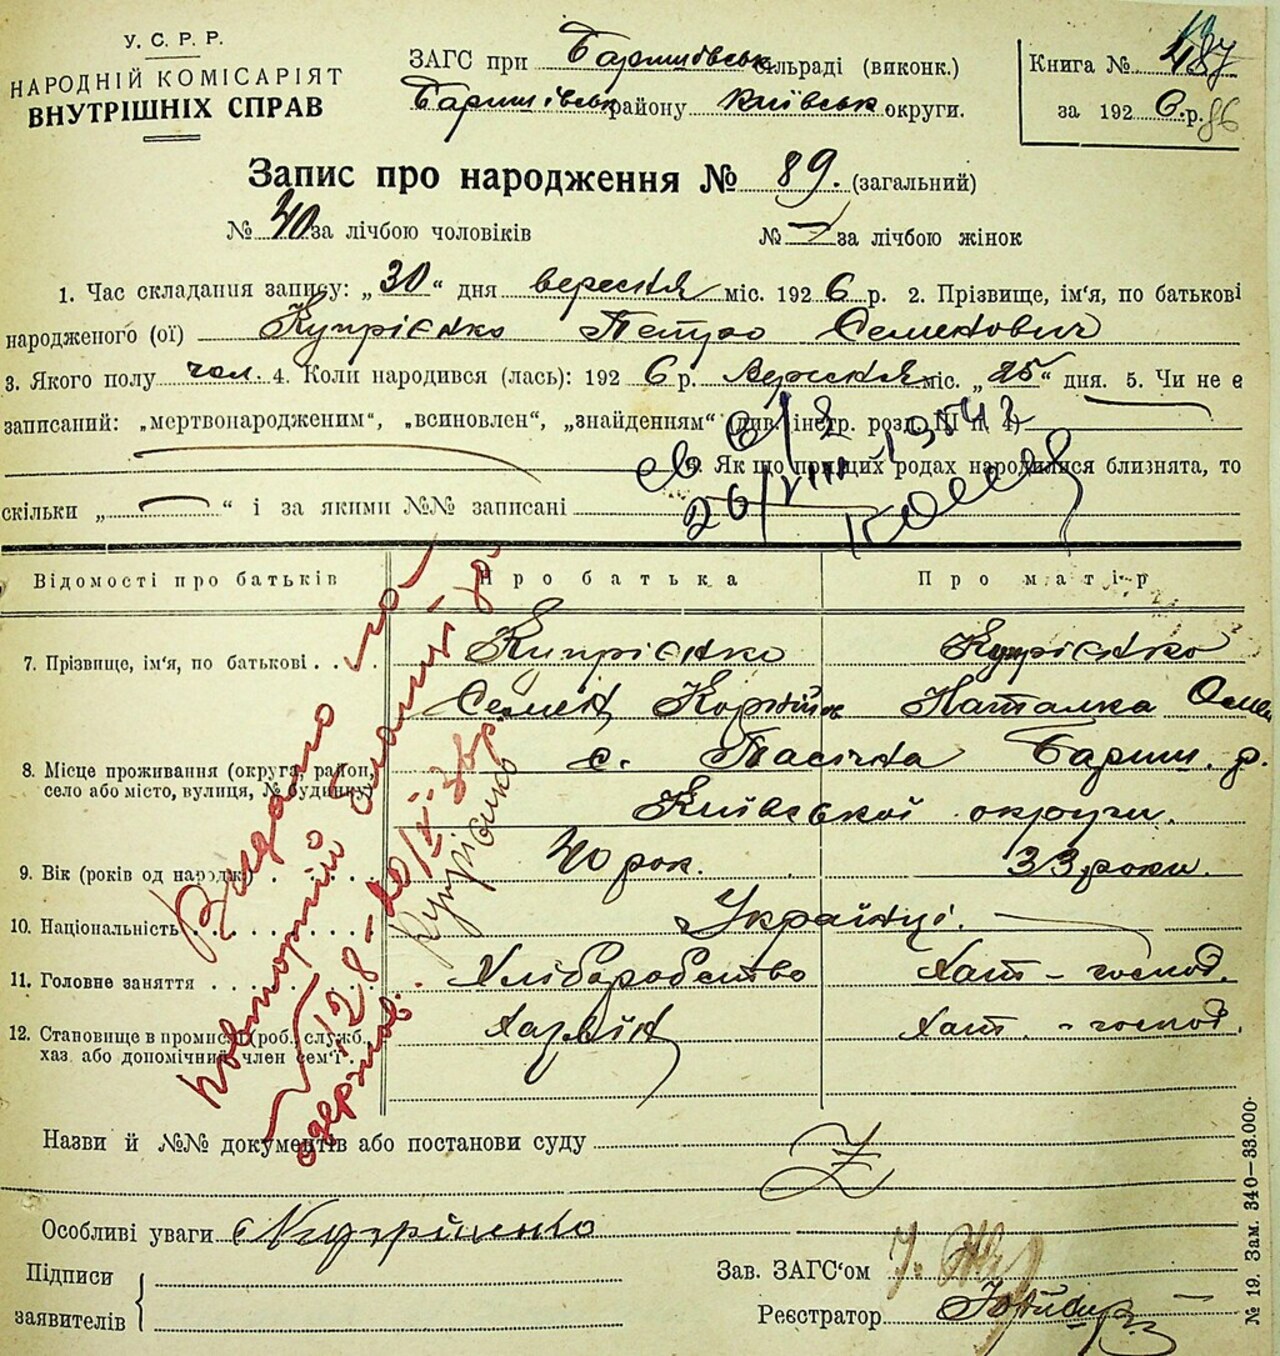 У. С. Р. Р.
НАРОДНІЙ КОМІСАРІЯТ
ВНУТРІШНІХ СПРАВ
ЗАГС при Баришівськ сільраді (виконк.)
Баришівськ району Київськ округи.
Книга № 487
за 192 6 р. 86
Запис про народження № 89. (загальний)
№ 40 за лічбою чоловіків
№ — за лічбою жінок
1. Час складання запису: „30“ дня вересня міс. 192 6 р. 2. Прізвище, ім'я, по батькові
народженого (ої) Купрієнко Петро Семенович
3. Якого полу чол. 4. Коли народився (лась): 192 6 р. Вересня міс. „25“ дня. 5. Чи не є
записаний: „мертвонародженим“, „всиновлен“, „знайденням“ (див. інстр. розд. III п. 4)
6. Як що при цих родах народилися близнята, то
скільки „ — “ і за якими №№ записані
26/VIII
Відомості про батьків
Про батька
Про матір
7. Прізвище, ім'я, по батькові . . . .
Купрієнко
Семен Корнійов
Купрієнко
Наталка
8. Місце проживання (округа, район,
село або місто, вулиця, № будинку)
с. Пасічна Бариш. р.
Київської округи.
9. Вік (років од народж.) . . . .
40 рок.
33 роки.
10. Національність . . . . . . . .
Українці.
11. Головне заняття . . . . . . .
Хліборобство
Хат - господ.
12. Становище в промислі (роб., служб.,
хаз. або допомічний член сем'ї .
Хазяїн
Хат. - господ.
Видано
повторний
одержав.
Купрієнко
Назви й №№ документів або постанови суду
Z
Особливі уваги Купрієнко
Підписи
заявителів
Зав. ЗАГС'ом
Реєстратор
№ 19. Зам. 340—33.000.